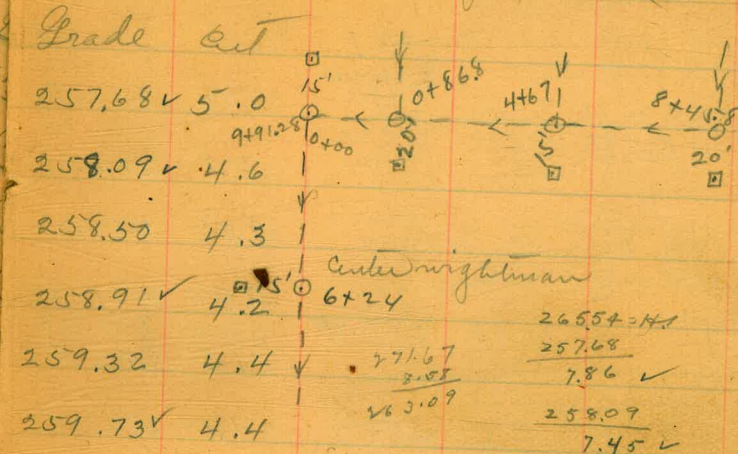 Grade cut
257.68✓ 5.0
258.09✓ 4.6
258.50 4.3
258.91✓ 4.2
259.32 4.4
259.73✓ 4.4
15'
9+91.28
0+00
20'
0+86.8
15'
4+67
8+45.8
20'
15'
6+24
Center wightman
271.67
8.58
263.09
26554=H.I
257.68
7.86 ✓
258.09
7.45 ✓